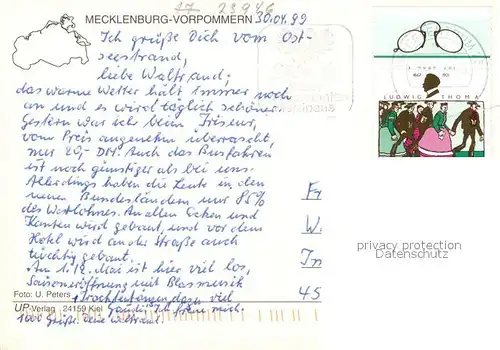 17 23946
MECKLENBURG-VORPOMMERN 30.04.99
Ich grüße Dich vom Ost-
seestrand,
liebe Waltraud;
das warme Wetter hält immer noch
an und es wird täglich schöner.
Gestern war ich beim Friseur,
vom Preis angenehm überrascht,
nur 20,- DM. Auch das Busfahren
ist noch günstiger als bei uns.
Allerdings haben die Leute in den
neuen Bundesländern nur 85%
des Westlohnes. An allen Ecken und
Kanten wird gebaut, und vor dem
Hotel wird an der Straße auch
tüchtig gebaut.
Am 1./2. Mai ist hier viel los,
Saisoneröffnung mit Blasmusik
+ Trachtenumzug dazu viel
Gaudi. Ich freue mich.
1000 Grüße. Deine Waltraud
Foto: U. Peters
UP-Verlag 24159 Kiel
LUDWIG THOMA
Fr
W
In
45
privacy protection
Datenschutz